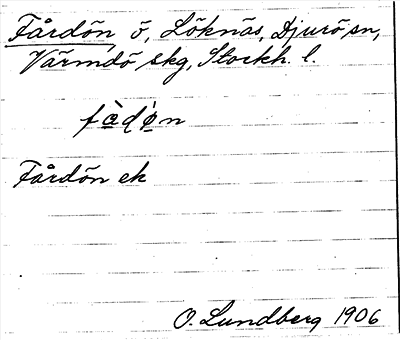 Fårdön ö, Löknäs, Djurö sn,
Värmdö skg, Stockh. l.
fàdǿn
Fårdön ek
O. Lundberg 1906